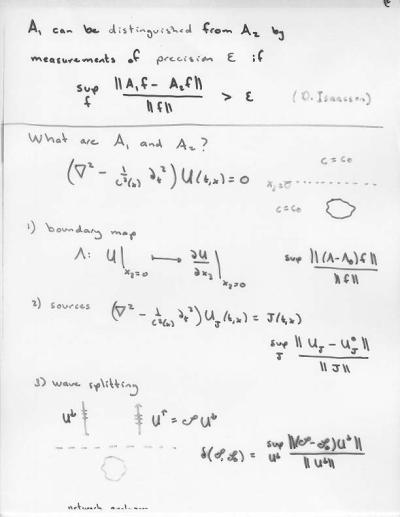 A₁ can be distinguished from A₂ by
measurements of precision ε if
sup_f ||A₁f - A₂f|| / ||f|| > ε (D. Isaacson)
What are A₁ and A₂?
(∇² - 1/c²(x) ∂ₜ²) U(t,x) = 0
c = c₀
x₃=0
c = c₀
1) boundary map
Λ: U|_{x₃=0} ↦ ∂U/∂x₃|_{x₃=0} sup ||(Λ-Λ₀)f|| / ||f||
2) sources (∇² - 1/c²(x) ∂ₜ²) U_J(t,x) = J(t,x)
sup_J ||U_J - U_J⁰|| / ||J||
3) wave splitting
U↓ U↑ = 𝒮U↓
δ(𝒮,𝒮₀) = sup_{U↓} ||(𝒮-𝒮₀)U↓|| / ||U↓||